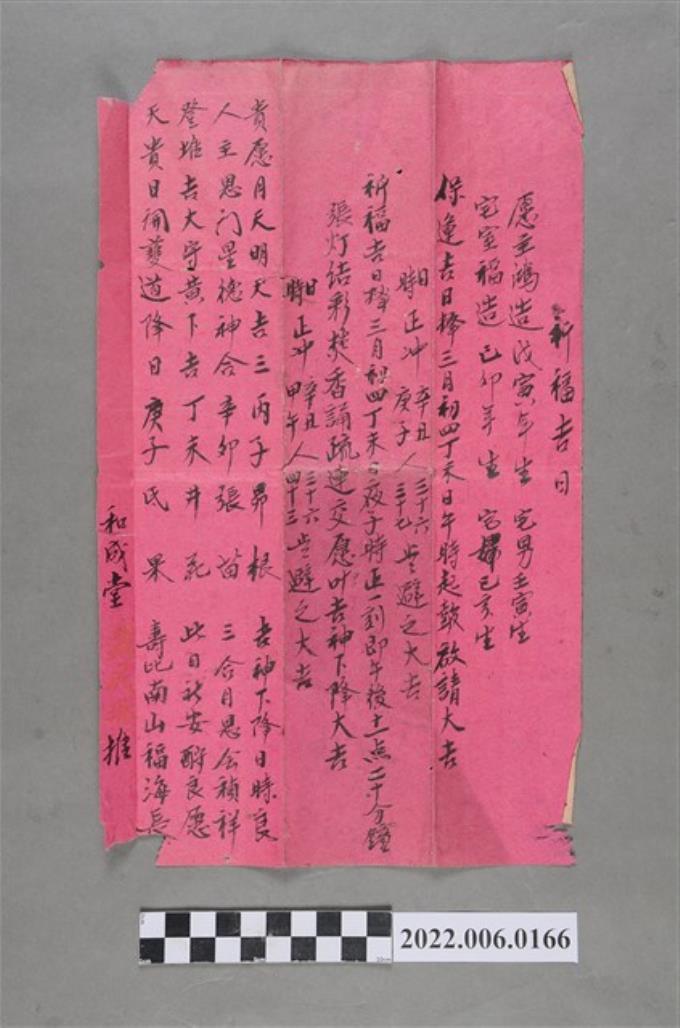 祈福吉日
愿主鴻造戊寅年生 宅男壬寅生
宅室福造己卯年生 宅婦己亥生
保運吉日擇三月初四丁未日午時起鼓啟請大吉
日時正冲辛丑庚子人三十六三十七歲避之大吉
祈福吉日擇三月初四丁未日夜子時正一刻即午後十一点二十分鐘
張灯結彩焚香誦疏運交愿叶吉神下降大吉
日時正冲辛丑甲午人三十六四十三歲避之大吉
貴愿月天明天吉三丙子昴根 吉神下降日時良
人主恩门星德神合辛卯張苗 三合月恩会禎祥
登壇吉大守黄下吉丁未井花 此日祈安酧良愿
天貴日開蔓道降日庚子氐果 壽比南山福海長
和成堂 推
2022.006.0166